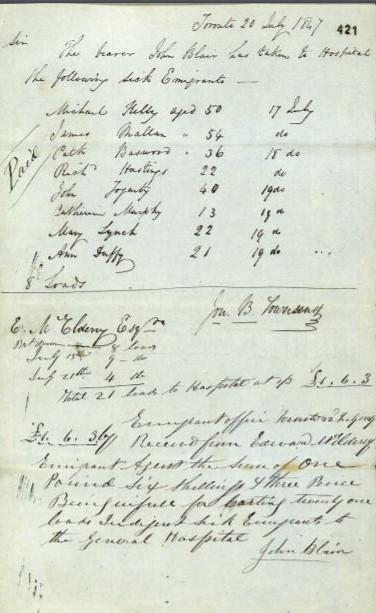 Toronto 20 July 1847
421
Sir
The bearer John Blair has taken to Hospital
the following sick Emigrants —
Michael Kelly aged 50 17 July
James Mallan " 54 do
Cath 36 18 do
Richd Hastings 22 do
John Fogarty 40 19 do
Catherine Murphy 13 19 do
Mary Lynch 22 19 do
Ann Duffy 21 19 do
Paid
8 Loads
Jon. B. Townsend
E. McElderry Esqre
8 loads
July 9 - do
July 21st 4 do
Total 21 loads to Hospital at 1/3 £1. 6. 3
Emigrant office Toronto
£1. 6. 3 Cy Received from Edward McElderry
Emigrant Agent the Sum of One
Pound Six Shillings & three Pence
Being in full for Carting twenty one
loads Indigent Sick Emigrants to
the General Hospital
John Blair